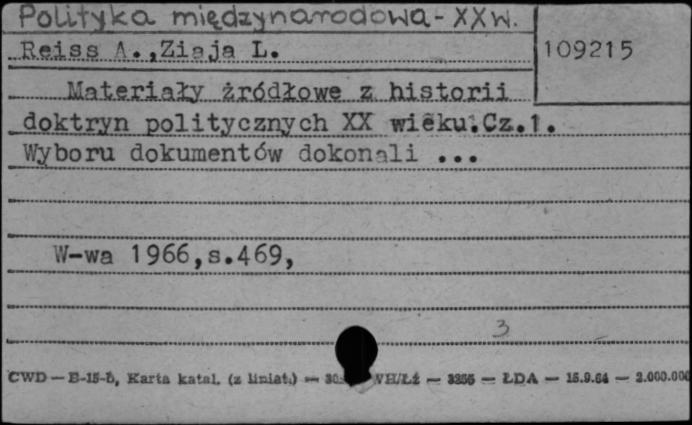 Polityka międzynarodowa - XX w.
Reiss A.,Ziaja L.
109215
Materiały żródłowe z historii
doktryn politycznych XX wieku.Cz.1.
Wyboru dokumentów dokonali ...
W-wa 1966,s.469,
3
CWD — E-15-b, Karta katal. (z liniat.) — WH/Łź — 3256 — ŁDA — 15.9.64 — 2.000.000